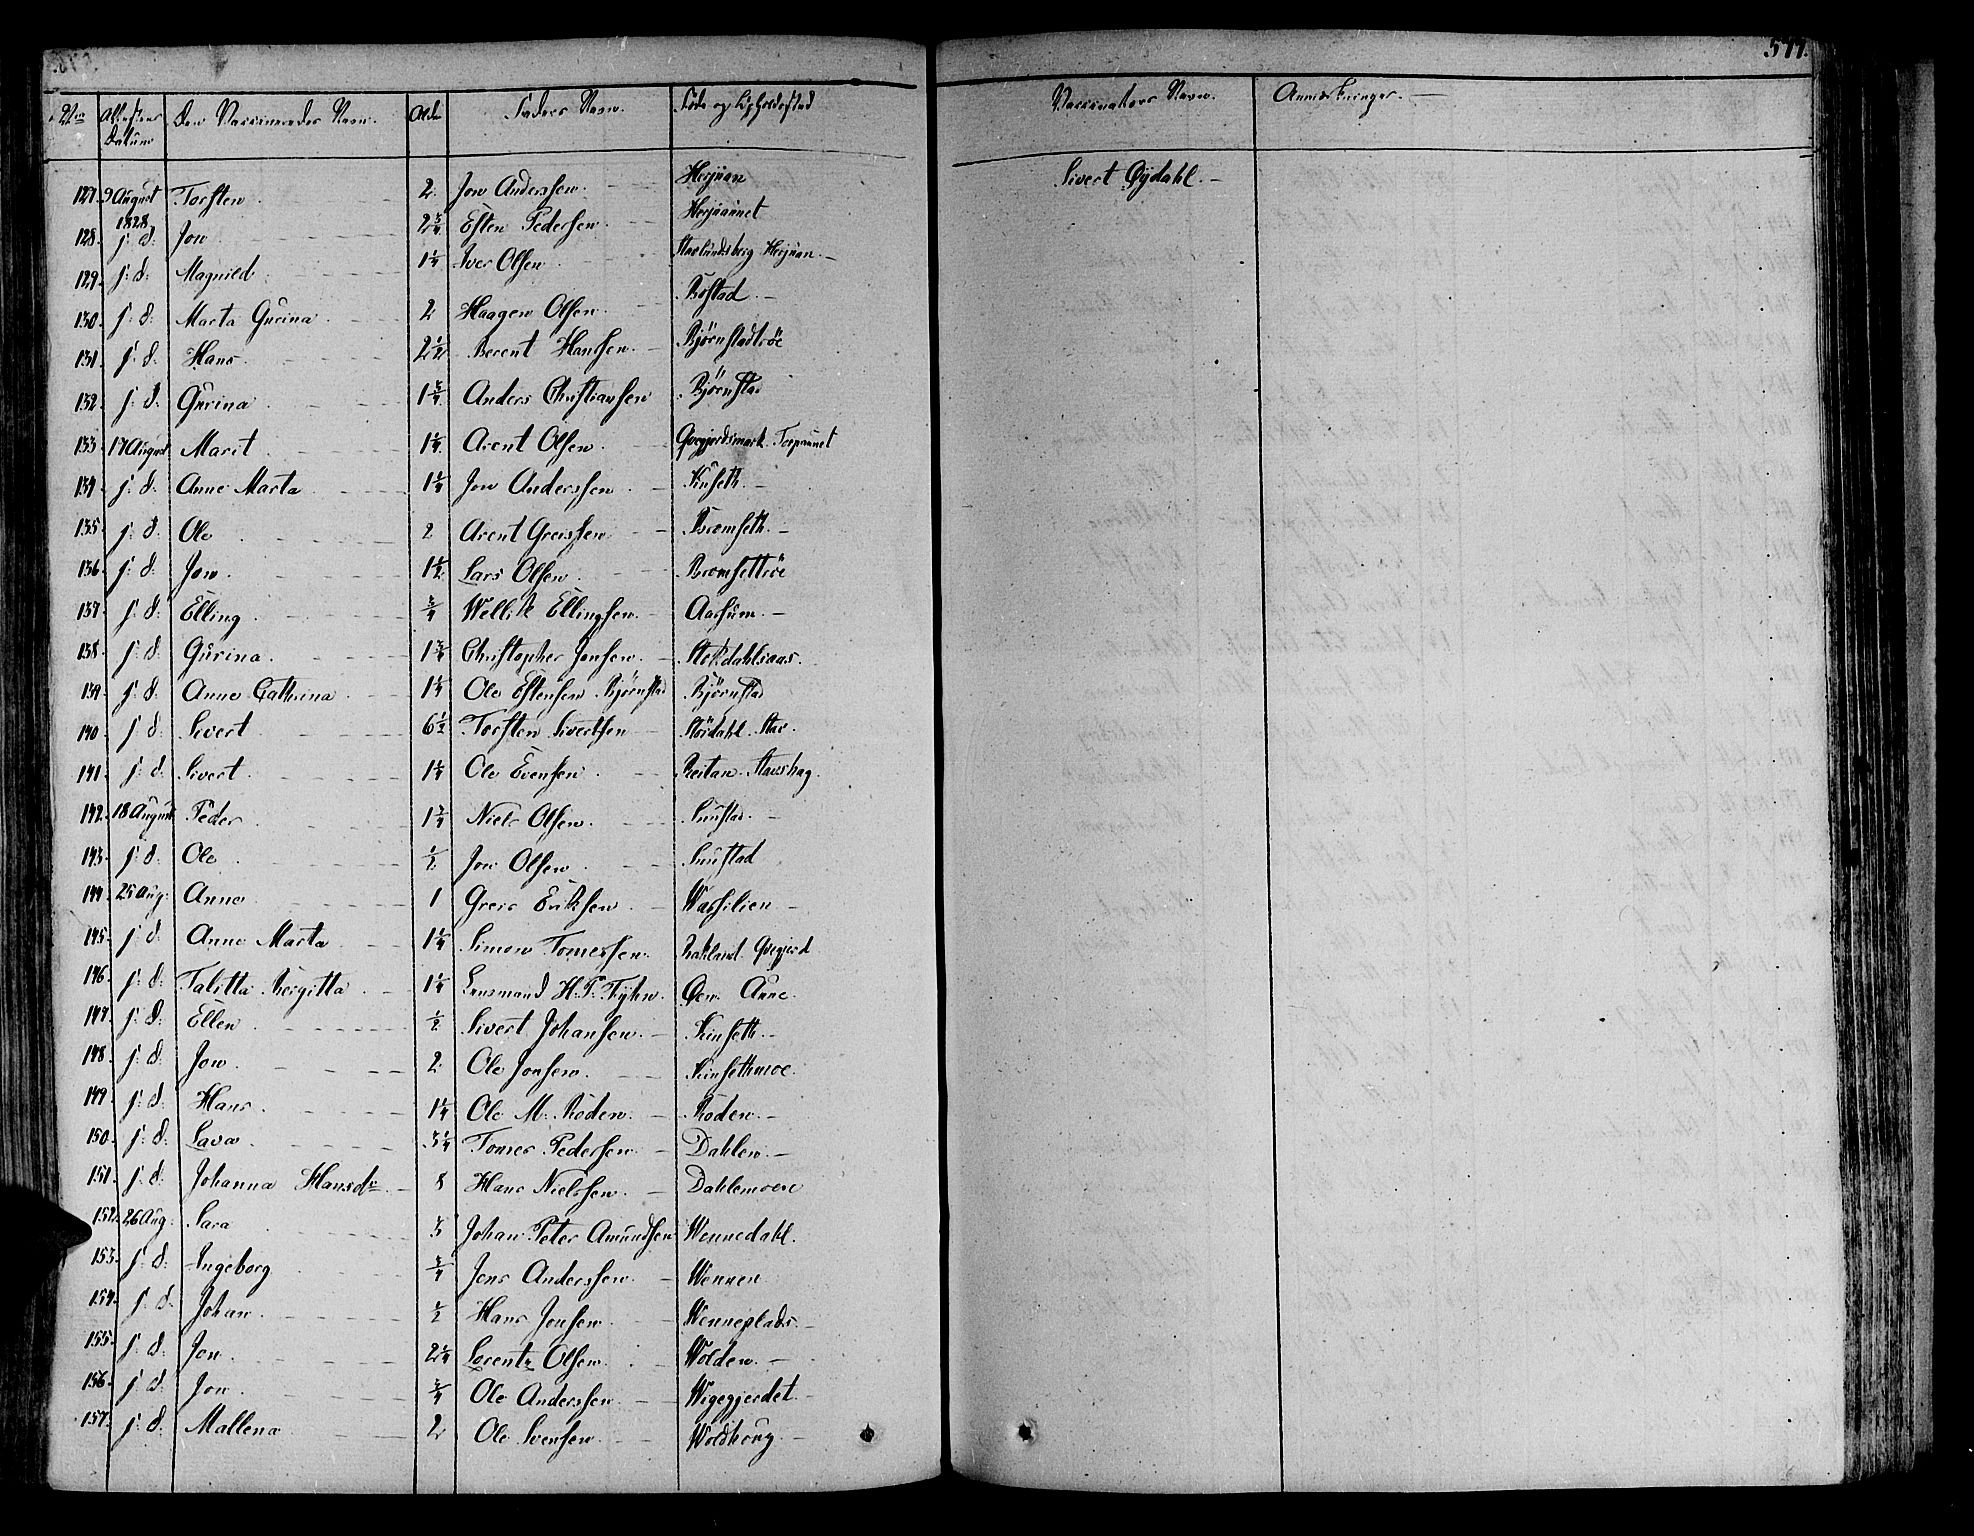 577.
No Attestens Datum Den Vaccineredes Navn. Ald. Faders Navn. Føde og Opholdssted Vaccinateurs Navn. Anmærkninger.
127. 9 August 1828 Torsten 2 Jon Anderssen. Herjuan Sivert Øydahl.
128. s: d: Jon 2 3/4 Esten Pedersen. Herjuaunet
129. s: d: Magnild 1 1/4 Iver Olsen Herjuan.
130. s: d: Marta Gurina 2 Haagen Olsen. Bostad.
131. s: d: Hans 2 1/2 Berent Hanssen. Bjørnstadtrøe
132. s: d: Gurina 1 3/4 Anders Christiansen Bjørnstad
133. 17 August Marit 1 1/4 Arent Olsen Qvegjerdsmark.
134. s: d: Anne Marta 1 1/4 Jon Anderssen Kinseth.
135. s: d: Ole 2 Arent Greissen Bromseth.
136. s: d: Jon. 1 1/2 Lars Olsen. Bromsettrøe
137. s: d: Elling 3/4 Wellik Ellingsen. Aarsum.
138. s: d: Gurina. 1 3/4 Christopher Jonsen. Stokdahlsaas.
139. s: d: Anne Cathrina 1 1/4 Ole Estensen Bjørnstad Bjørnstad
140. s: d: Sivert 6 1/2 Torsten Sivertsen Størdahl. Stav.
141. s: d: Sivert 1 1/4 Ole Evensen Reitan. Stavshag.
142. 18 August Peder 1 3/4 Niels Olsen. Suustad.
143. s: d: Ole 1/2 Jon Olsen Suustad
144. 25 Aug: Anne 1 Greis Eriksen Wassilien
145. s: d: Anne Marta 1 1/4 Simon Tomessen. Qvegjerd
146. s: d: Talitta Bergitta 1 1/4 Lensmand H. P. Øen Aune.
147. s: d: Ellen 1/2 Sivert Johansen. Kinseth.
148. s: d: Jon 2 Ole Jonsen. Kinsethmoe.
149. s: d: Hans. 1 1/4 Ole M. Roden. Roden.
150. s: d: Sava. 3 1/4 Tomes Pedersen. Dahlen.
151. s: d: Johanna Hansdr 8 Hans Nielssen. Dahlemoen
152. 26 Aug: Sara Johan Peter Amundsen Wennedahl.
153. s: d: Ingeborg 3/4 Jens Anderssen. Wennen
154. s: d: Johan. 1/2 Hans Jonsen. Wenneplads.
155. s: d: Jon. 2 1/4 Lorentz Olsen. Wolden.
156. s: d: Jon 3/4 Ole Anderssen Wigegjerdet.
157. s: d: Mallena 2 Ole Svensen. Woldhoug.